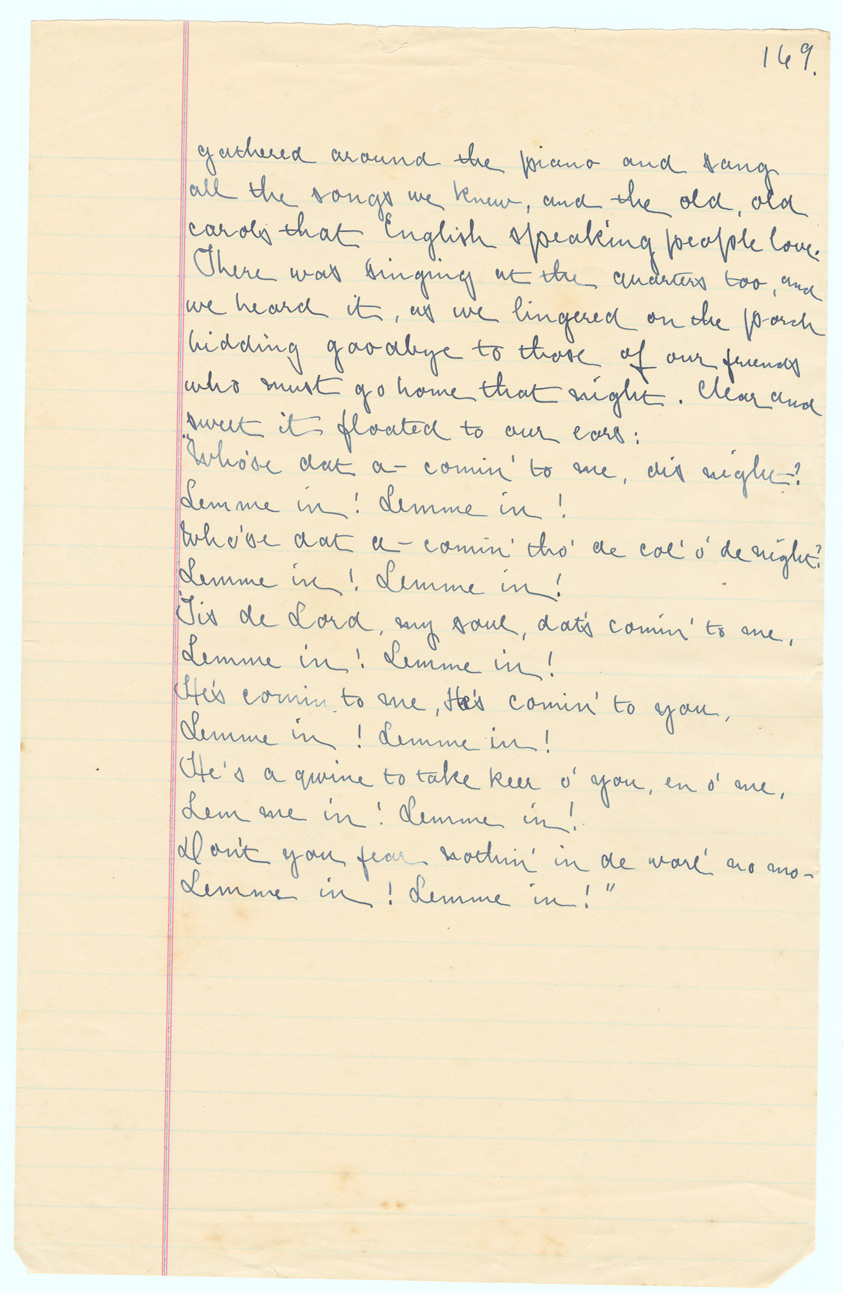 169.
gathered around the piano and sang
all the songs we knew, and the old, old
carols that English speaking people love.
There was singing at the quarters too, and
we heard it, as we lingered on the porch
bidding goodbye to those of our friends
who must go home that night. Clear and
sweet it floated to our ears:
"Who'se dat a-comin' to me, dis night?
Lemme in! Lemme in!
Who'se dat a-comin' tho' de col' o' de night?
Lemme in! Lemme in!
'Tis de Lord, my soul, dat's comin' to me,
Lemme in! Lemme in!
He's comin to me, He's comin' to you,
Lemme in! Lemme in!
He's a gwine to take keer o' you, en o' me,
Lem me in! Lemme in!
Don't you fear nothin' in de worl' no mo-
Lemme in! Lemme in!"